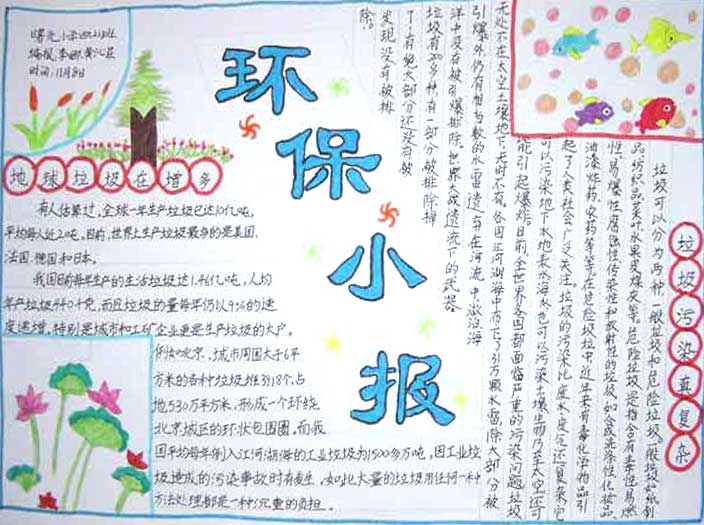 曙光小学四
编报:李娜
时间:11月8日
环保小报
地球垃圾在增多
有人估算过,全球一年生产垃圾已达10亿吨,
平均每人近2吨。目前,世界上生产垃圾最多的是美国.
法国.德国和日本。
我国目前每年生产的生活垃圾达1.46亿吨,人均
年产垃圾440千克,而且垃圾的量每年仍以9%的速
度递增,特别是城市和工矿企业更是生产垃圾的大户。
例如北京,城市周围大于6平
方米的各种垃圾堆3918个,占
地530万平方米,形成一个环绕
北京城区的环状包围圈,而我
国平均每年倒入江河湖海的工业垃圾为1500多万吨,因工业垃
圾造成的污染事故时有发生,如此大量的垃圾用任何一种
方法处理都是一种沉重的负担。
垃圾污染真复杂
垃圾可以分为两种,一般垃圾和危险垃圾。一般垃圾如纸制
品.纺织品.菜叶.水果皮.煤灰等。危险垃圾是指含有毒性.易燃
性.易爆性.腐蚀性.传染性和放射性的垃圾,如合成洗涤性.化妆品.
油漆.炸药.农药等等。在危险垃圾中,近年来有毒化学物品引
起了人类社会广泛关注。垃圾的污染比废水.废气还复杂,它
可以污染地下水.地表水.海水,也可以污染土壤.生物乃至太空,还可
能引起爆炸。目前,全世界各国都面临严重的污染问题,垃圾
无处不在,太空.土壤.地下,无时不有。各国江河湖海中布下了引万颗水雷,除大部分被
引爆外,仍有相当数的水雷遗弃在河流中.激沿海
洋中没有被引爆排除,世界大战遗流下的武器
垃圾有200多种,有一部分被排除掉
了,有绝大部分还没有被
发现,没有被排
除。